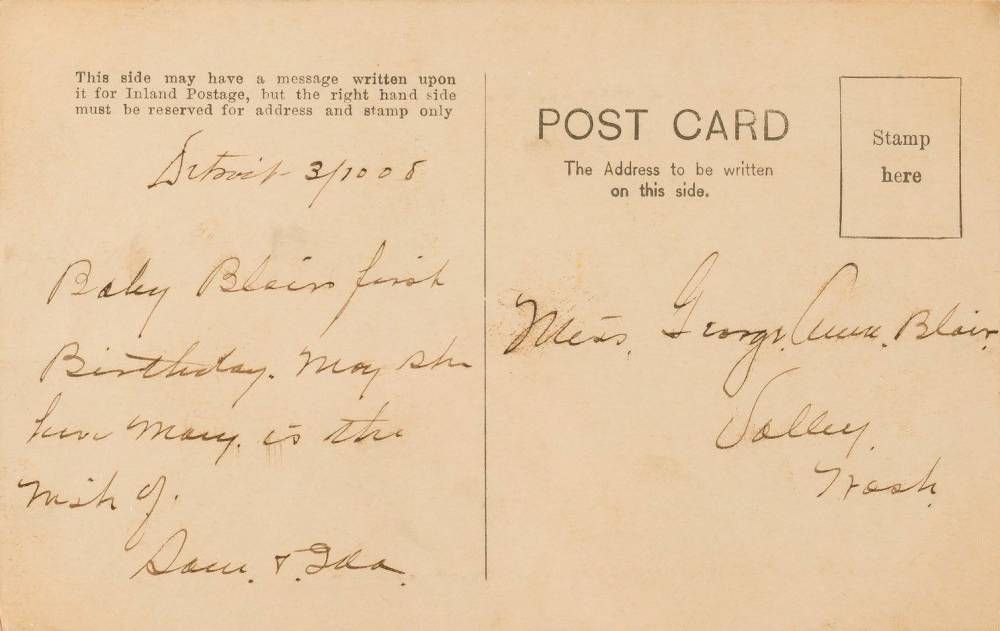 This side may have a message written upon
it for Inland Postage, but the right hand side
must be reserved for address and stamp only
Detroit 3/10 08
Baby Blair first
Birthday. May she
have Many. is the
Wish of.
Sam. & Ida.
POST CARD
The Address to be written
on this side.
Stamp
here
Miss. George. Anna. Blair.
Valley.
Wash.